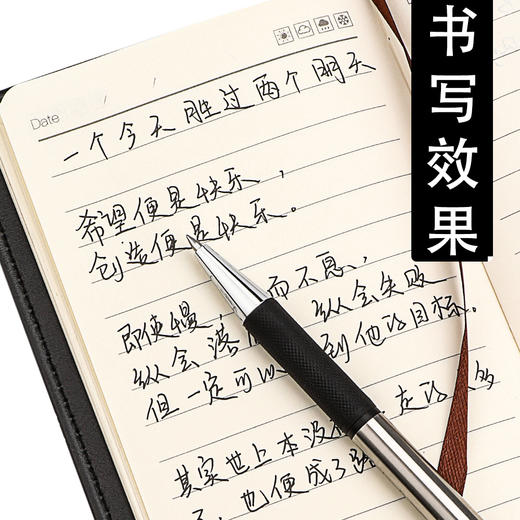 书写效果
Date
一个今天胜过两个明天
希望便是快乐，
创造便是快乐。
即使慢，而不息，
纵会落 纵会失败
但一定可以 到他的目标。
其实世上本没 走的 多
了，也便成了路